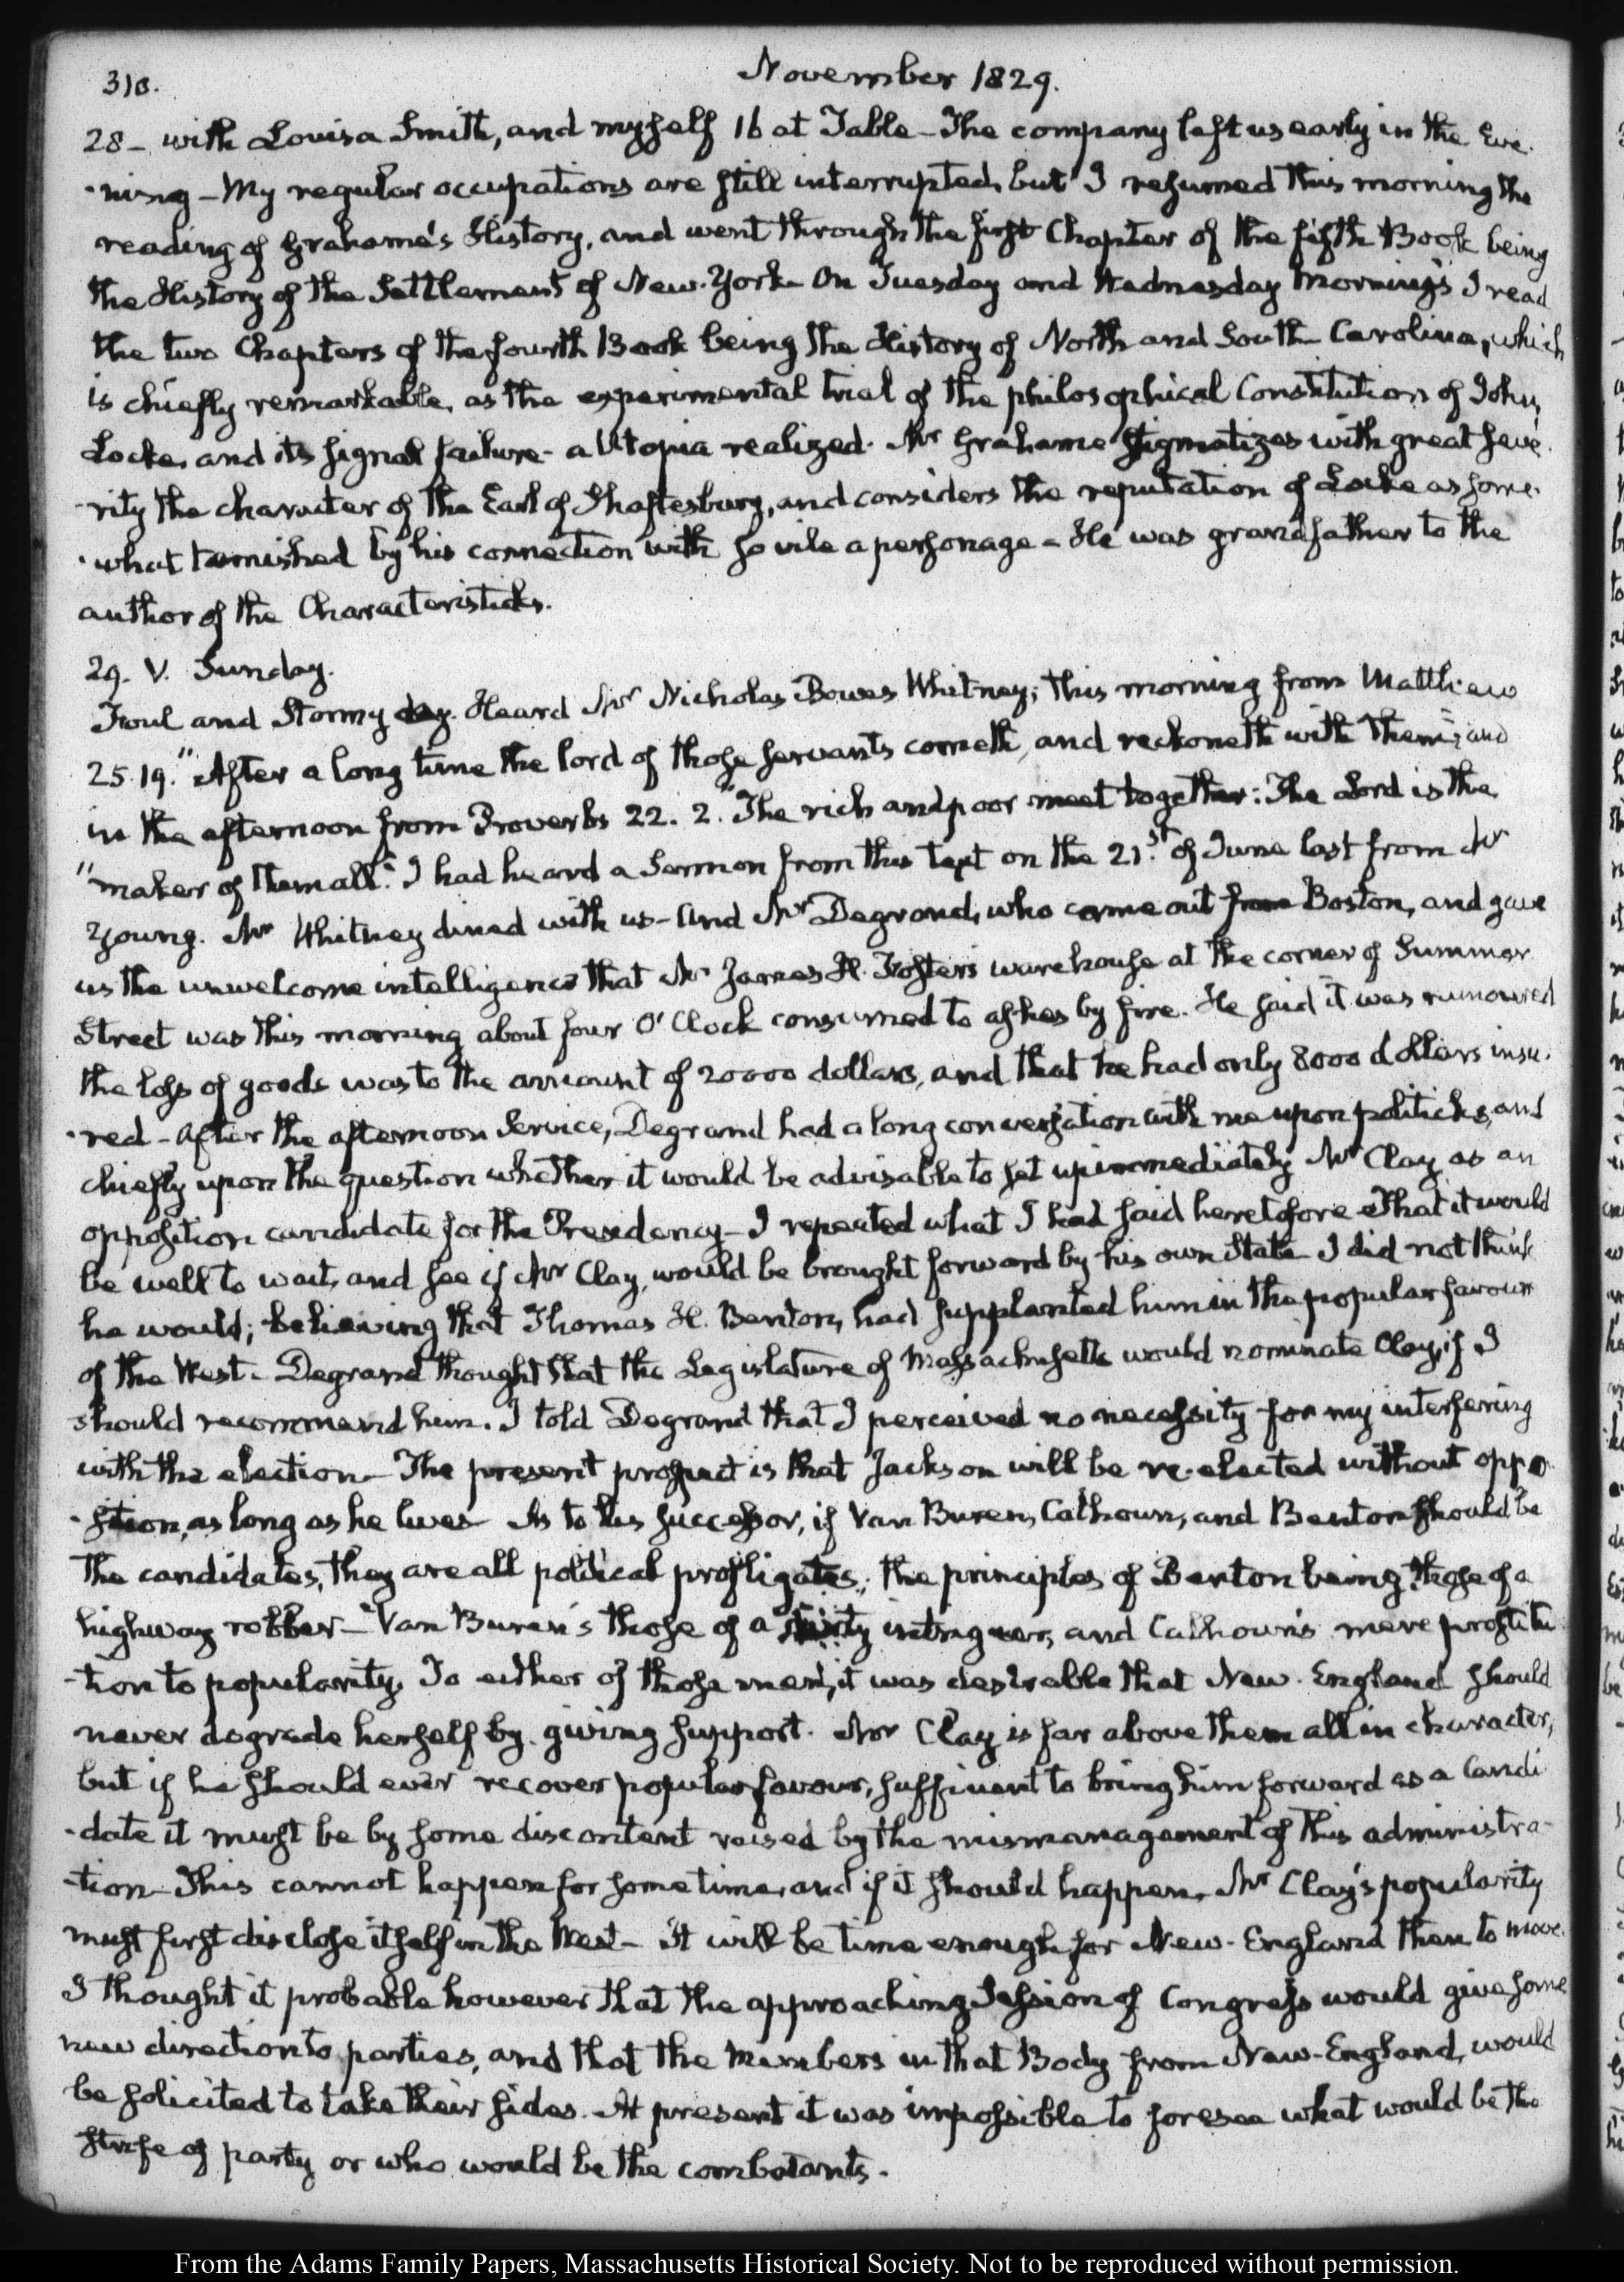 310.
November 1829.
28 – with Louisa Smith, and myself 16 at Table – The company left us early in the Eve-
-ning – My regular occupations are still interrupted, but I resumed this morning the
reading of Grahame's History, and went through the first Chapter of the fifth Book being
the History of the Settlement of New-York. On Tuesday and Wednesday Mornings I read
the two Chapters of the fourth Book being the History of North and South Carolina, which
is chiefly remarkable, as the experimental trial of the philosophical Constitution of John
Locke, and its signal failure – a Utopia realized. Mr Grahame stigmatizes with great seve-
-rity the character of the Earl of Shaftesbury, and considers the reputation of Locke as some-
-what tarnished by his connection with so vile a personage – He was grandfather to the
author of the Characteristicks.
29. V. Sunday.
Foul and Stormy day. Heard Mr Nicholas Bowes Whitney; this morning from Matthew
25.19. "After a long time the lord of those servants cometh, and reckoneth with them"; and
in the afternoon from Proverbs 22. 2. "The rich and poor meet together: The Lord is the
"maker of them all." I had heard a Sermon from this text on the 21st of June last from Mr
Young. Mr Whitney dined with us – And Mr Degrand, who came out from Boston, and gave
us the unwelcome intelligence that Mr James H. Foster's warehouse at the corner of Summer
Street was this morning about four O'Clock consumed to ashes by fire. He said it was rumoured
the loss of goods was to the amount of 20000 dollars, and that he had only 8000 dollars insu-
-red – After the afternoon Service, Degrand had a long conversation with me upon politicks, and
chiefly upon the question whether it would be advisable to set up immediately Mr Clay as an
opposition candidate for the Presidency – I repeated what I had said heretofore – That it would
be well to wait, and see if Mr Clay, would be brought forward by his own State – I did not think
he would; believing that Thomas H. Benton, had supplanted him in the popular favour
of the West – Degrand thought that the Legislature of Massachusetts would nominate Clay, if I
should recommend him. I told Degrand that I perceived no necessity for my interfering
with the election – The present prospect is that Jackson will be re-elected without oppo-
-sition, as long as he lives – As to his successor, if Van Buren, Calhoun, and Benton should be
the candidates, they are all political profligates; the principles of Benton being those of a
highway robber – Van Buren's those of a intriguer, and Calhoun's mere prostitu-
-tion to popularity. To either of those men, it was desirable that New-England should
never degrade herself by giving support. Mr Clay is far above them all in character,
but if he should ever recover popular favour, sufficient to bring him forward as a Candi-
-date it must be by some discontent raised by the mismanagement of this administra-
-tion – This cannot happen for some time, and if it should happen, Mr Clay's popularity
must first disclose itself in the West – It will be time enough for New-England then to move.
I thought it probable however that the approaching Session of Congress would give some
new direction to parties, and that the Members in that Body from New-England, would
be solicited to take their sides. At present it was impossible to foresee what would be the
strife of party or who would be the combatants.
From the Adams Family Papers, Massachusetts Historical Society. Not to be reproduced without permission.